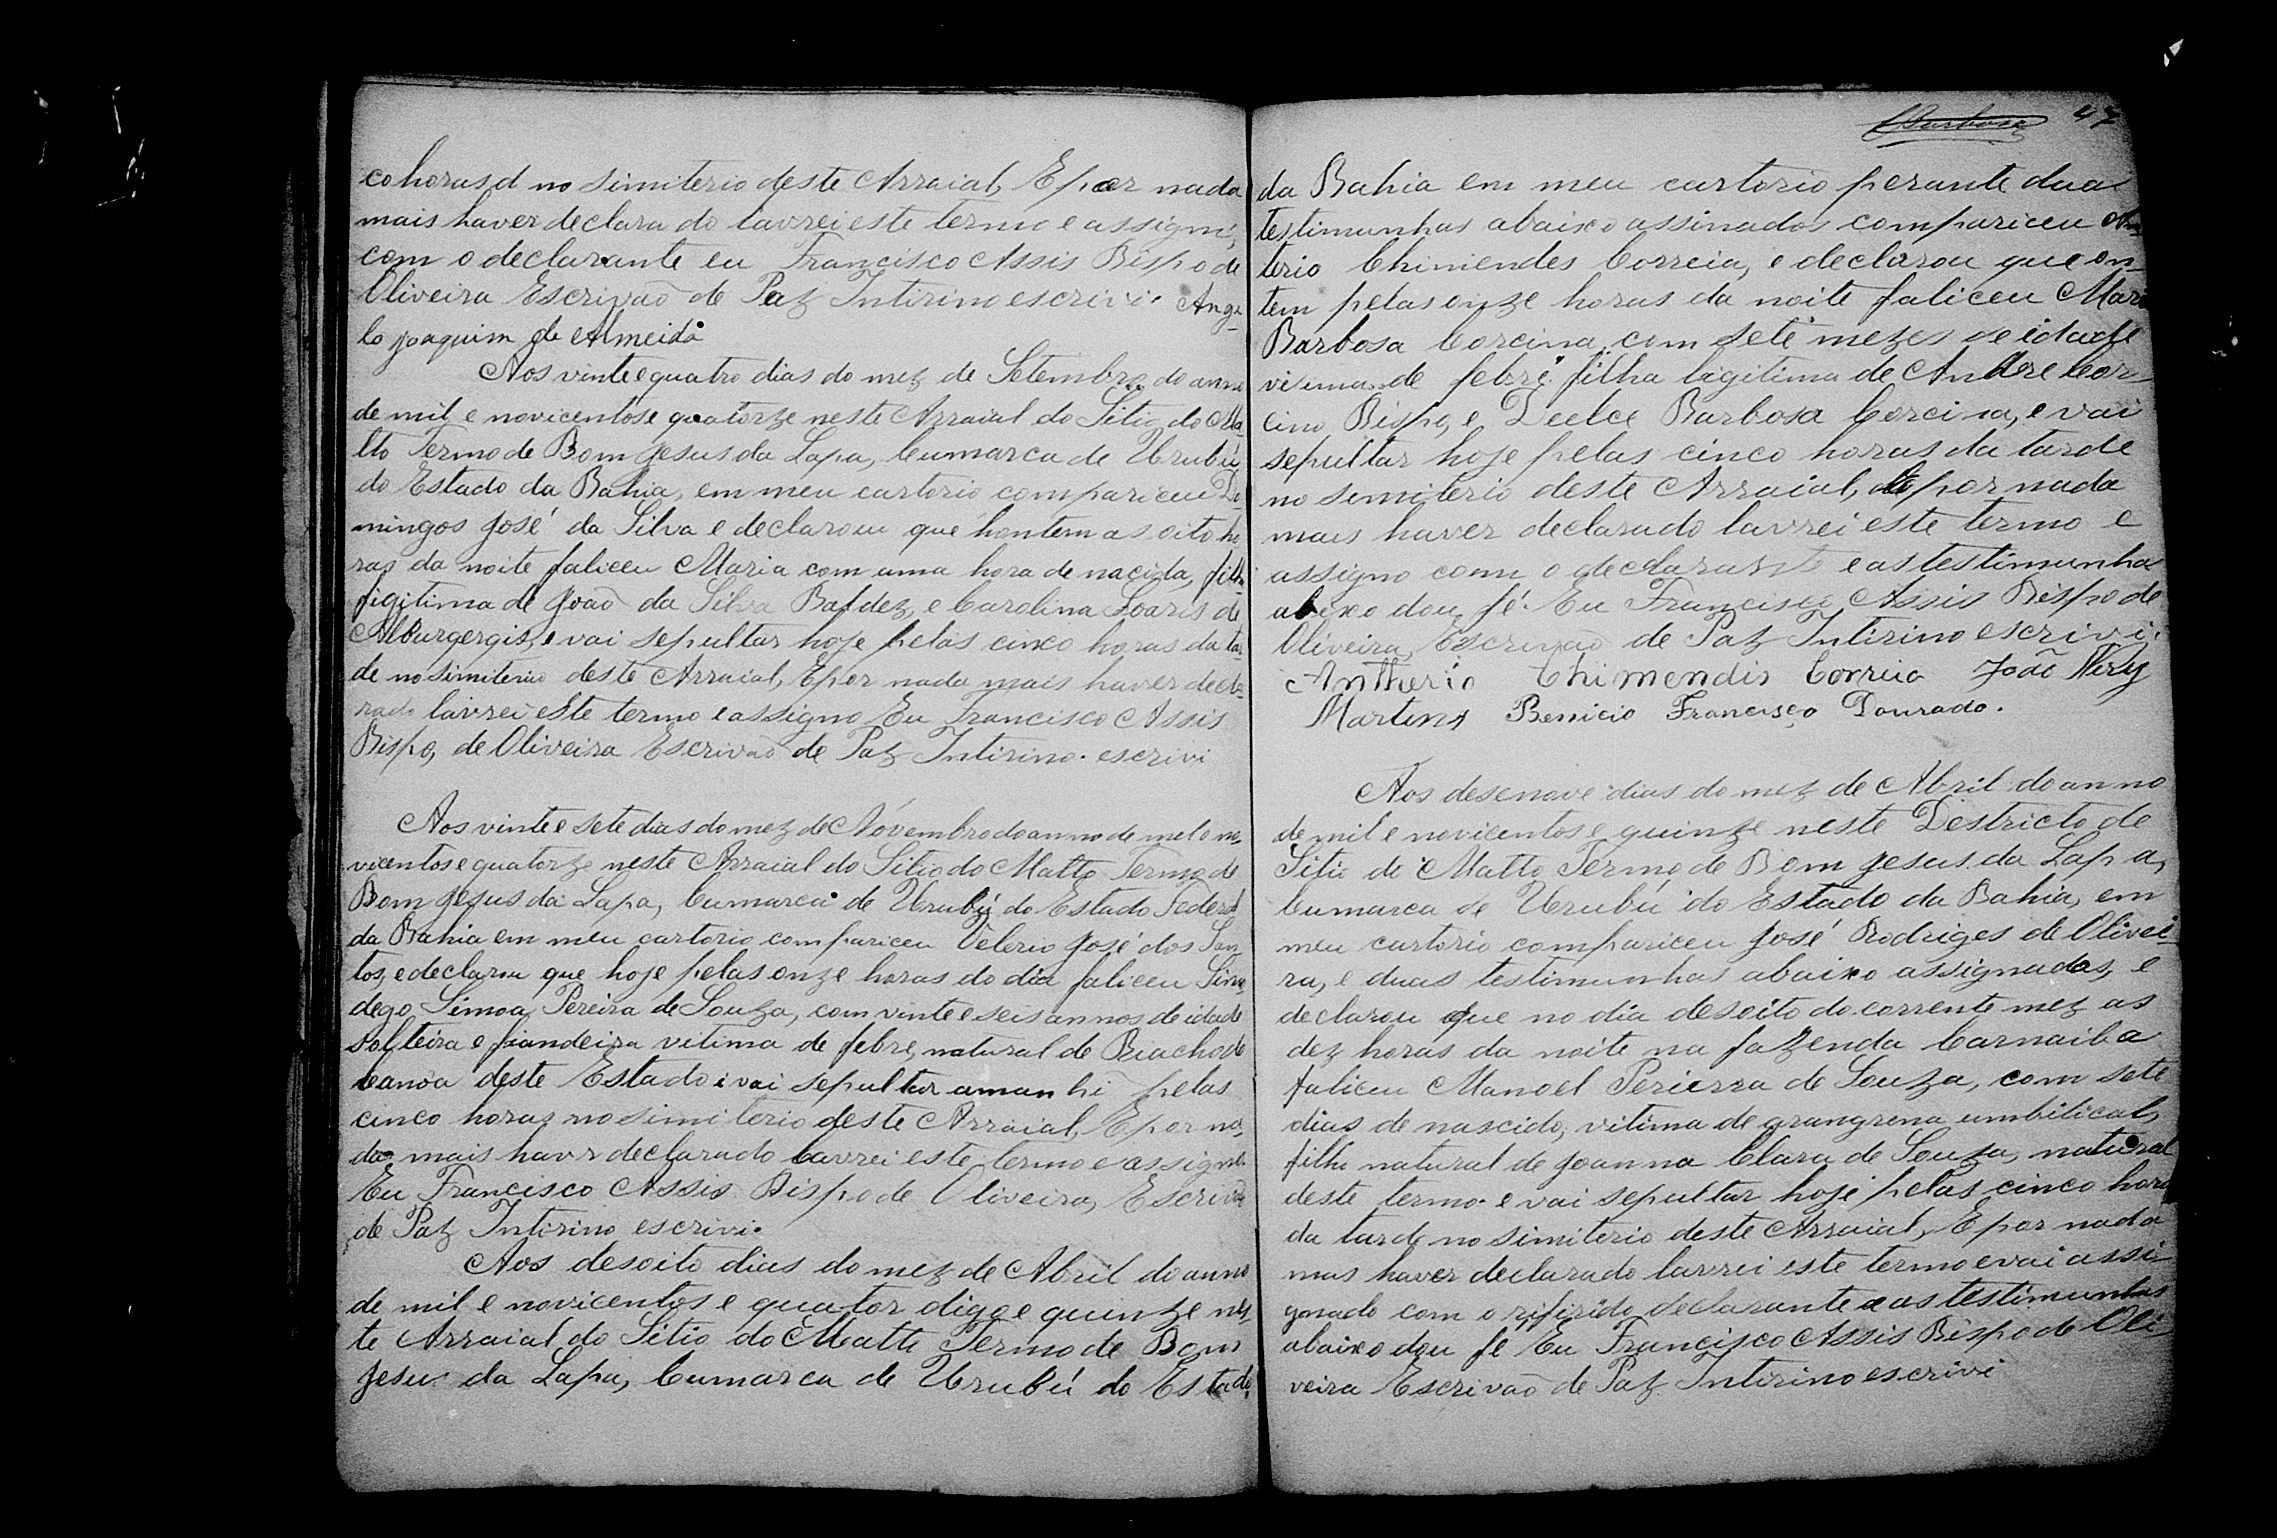 co horas d no simiterio deste Arraial, E por nada
mais haver declarado lavrei este termo e assigno,
com o declarante eu Francisco Assis Bispo de
Oliveira Escrivaõ de Paz Intirino escrivi. Ange-
lo joaquim de Almeida
Aos vinte e quatro dias do mez de Setembro do anno
de mil e novicentos e quatorze neste Arraial do Sitio do Ma-
tto Termo de Bom Jesus da Lapa, Cumarca de Urubú
do Estado da Bahia, em meu cartorio compariceu Do-
mingos José da Silva e declarou que hontem as oito ho
ras da noite faliceu Maria com uma hora de nacida, filha
ligitima de Joaõ da Silva Bafdez, e Carolina Soaris de
Alburgergis, e vai sepultar hoje pelas cinco horas da tar-
de no simiterio deste Arraial, E por nada mais haver decla-
rado lavrei este termo e assigno Eu Francisco Assis
Bispo, de Oliveira Escrivaõ de Paz Intirino. escrivi
Aos vinte e sete dias do mez de Novembro do anno de mel e no-
vicentos e quatorze neste Arraial do Sitio do Matto Termo de
Bom Jesus da Lapa, Cumarca de Urubú do Estado Federal
da Bahia em meu cartorio compariceu Velerio José dos San
tos, e declarou que hoje pelas onze horas do dia faliceu Simo
dego Simoa Pereira de Souza, com vinte e seis annos de idade
solteira e fiandeira vitima de febre, natural de Riacho de
canoa deste Estado e vai sepultar amanhi pelas
cinco horas no simiterio deste Arraial, E por na-
da mais havr declarado lavrei este termo e assigno
Eu Francisco Assis Bispo de Oliveira, Escrivaõ
de Paz Intirino escrivi.
Aos desoito dias do mez de Abril do anno
de mil e novicentos e quator digo e quinze nes-
te Arraial do Sitio do Matto Termo de Bom
Jesus da Lapa, Cumarca de Urubú do Estado
Barbosa 47
da Bahia em meu cartorio perante duas
testimunhas abaixo assinados compariceu An-
terio Chimendes Correia, e declarou que on-
tem pelas onze horas da noite faliceu Maria
Barbosa Corcina, com sete mezes de idade
vitima de febre. filha ligitima de Andre Cor-
cino Bispo, e Deelce Barbosa Corcina, e vai
sepultar hoje pelas cinco horas da tarde
no simiterio deste Arraial, E por nada
mais haver declarado lavrei este termo e
assigno com o declarante e as testimunhas
abaixo dou fé. Eu Francisco Assis Bispo de
Oliveira, Escrivaõ de Paz Intirino escrivi.
Antherio Chimendis Correia Joaõ Nery
Martins Benicio Francisco Dourado.
Aos desenove dias do mez de Abril do anno
de mil e novicentos e quinze neste Destricto de
Sitio do Matto Termo de Bom Jesus da Lapa,
Cumarca de Urubú do Estado da Bahia, em
meu cartorio compariceu José Rodriges de Olivei-
ra, e duas testimunhas abaixo assignados, e
declarou que no dia desoito do corrente mez as
dez horas da noite na fazenda Carnaiba
faliceu Manoel Perierra de Souza, com sete
dias de nascido, vitima de grangrena umbilical,
filho natural de Joanna Clara de Souza, natural
deste termo. e vai sepultar hoje pelas cinco horas
da tarde no simiterio deste Arraial, E por nada
mas haver declarado lavrei este termo e vai assi
gnado com o rifirido declarante e as testimunhas
abaixo dou fe Eu Francisco Assis Bispo de Oli
veira Escrivaõ de Paz Intirino escrivi